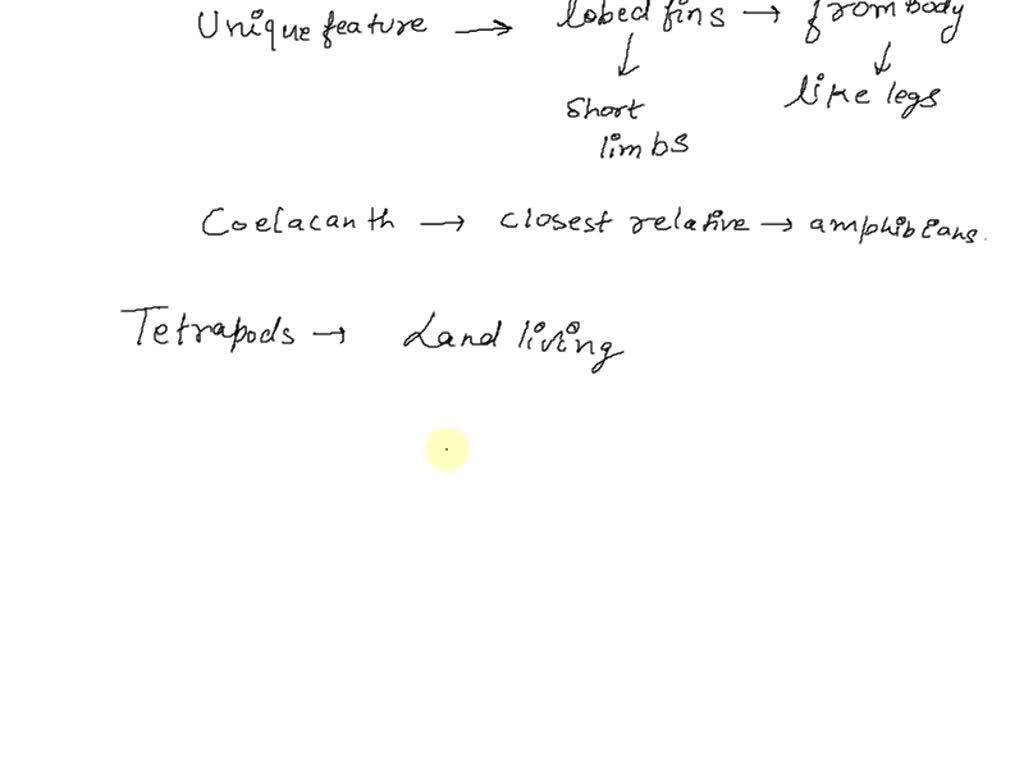 Unique feature → lobed fins → from body
↓ ↓
Short like legs
limbs
Coelacanth → closest relative → amphibians.
Tetrapods → Land living